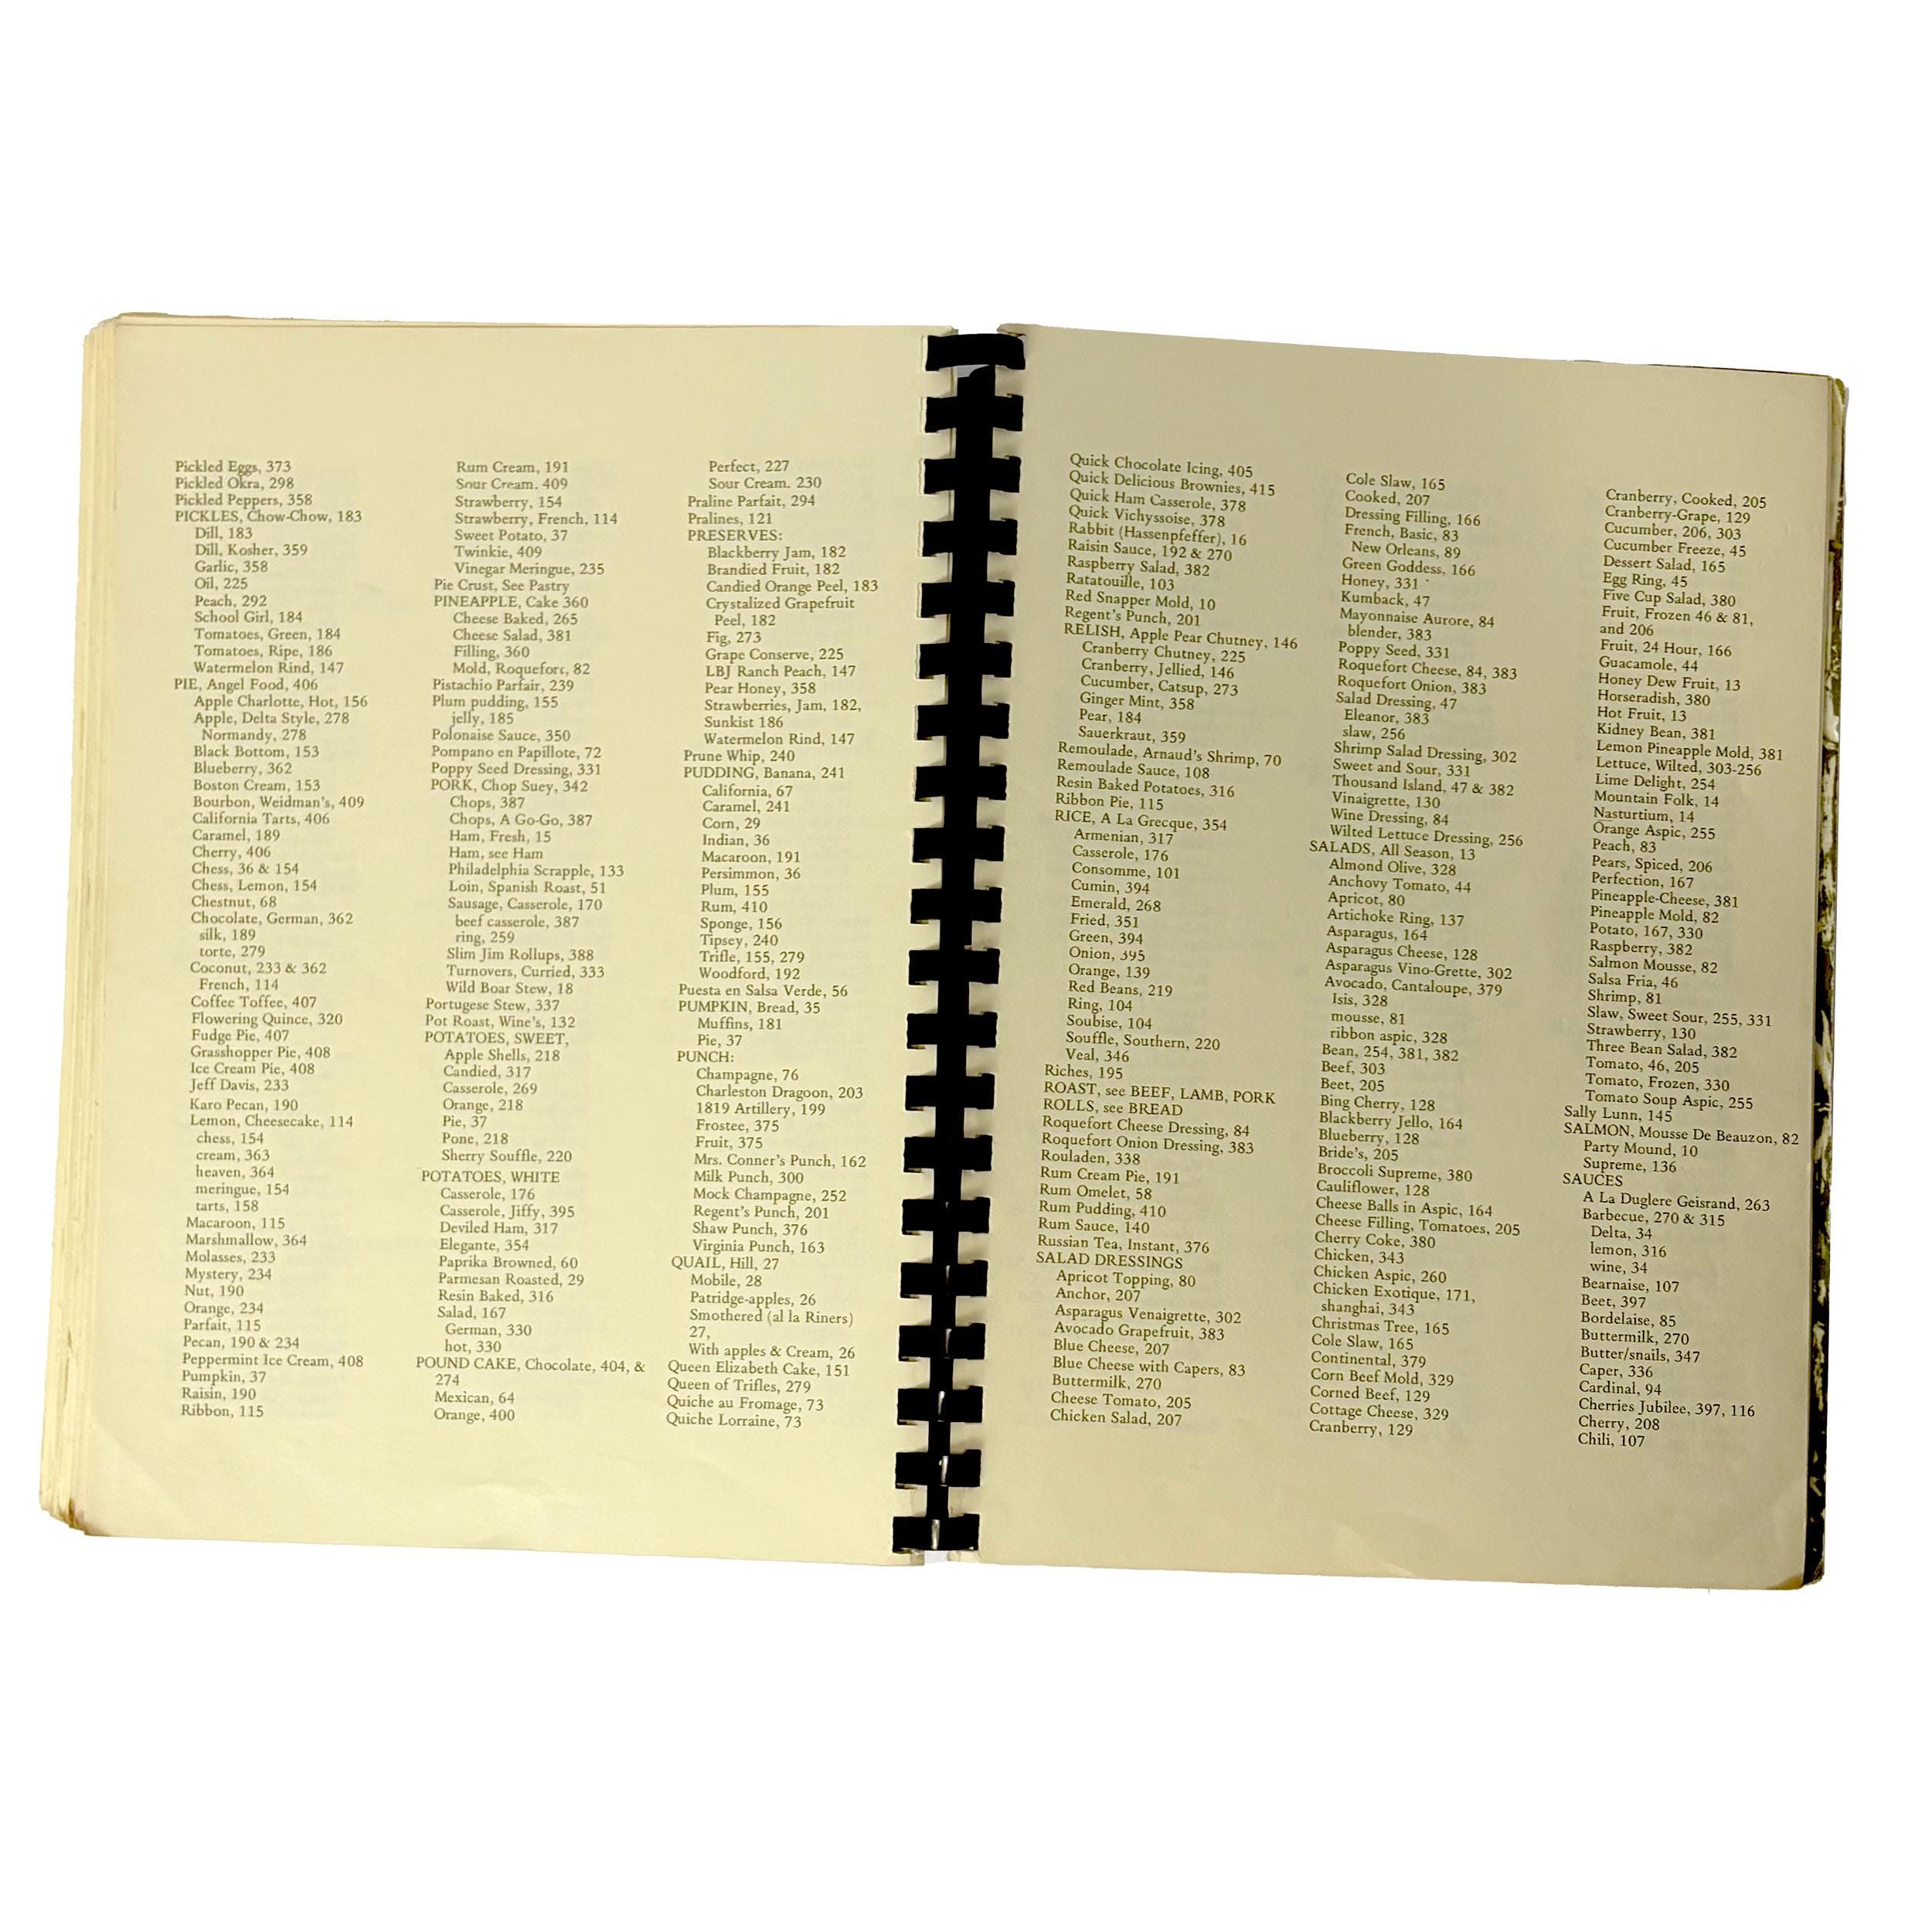 Pickled Eggs, 373
Pickled Okra, 298
Pickled Peppers, 358
PICKLES, Chow-Chow, 183
Dill, 183
Dill, Kosher, 359
Garlic, 358
Oil, 225
Peach, 292
School Girl, 184
Tomatoes, Green, 184
Tomatoes, Ripe, 186
Watermelon Rind, 147
PIE, Angel Food, 406
Apple Charlotte, Hot, 156
Apple, Delta Style, 278
Normandy, 278
Black Bottom, 153
Blueberry, 362
Boston Cream, 153
Bourbon, Weidman's, 409
California Tarts, 406
Caramel, 189
Cherry, 406
Chess, 36 & 154
Chess, Lemon, 154
Chestnut, 68
Chocolate, German, 362
silk, 189
torte, 279
Coconut, 233 & 362
French, 114
Coffee Toffee, 407
Flowering Quince, 320
Fudge Pie, 407
Grasshopper Pie, 408
Ice Cream Pie, 408
Jeff Davis, 233
Karo Pecan, 190
Lemon, Cheesecake, 114
chess, 154
cream, 363
heaven, 364
meringue, 154
tarts, 158
Macaroon, 115
Marshmallow, 364
Molasses, 233
Mystery, 234
Nut, 190
Orange, 234
Parfait, 115
Pecan, 190 & 234
Peppermint Ice Cream, 408
Pumpkin, 37
Raisin, 190
Ribbon, 115
Rum Cream, 191
Sour Cream. 409
Strawberry, 154
Strawberry, French, 114
Sweet Potato, 37
Twinkie, 409
Vinegar Meringue, 235
Pie Crust, See Pastry
PINEAPPLE, Cake 360
Cheese Baked, 265
Cheese Salad, 381
Filling, 360
Mold, Roquefort, 82
Pistachio Parfair, 239
Plum pudding, 155
jelly, 185
Polonaise Sauce, 350
Pompano en Papillote, 72
Poppy Seed Dressing, 331
PORK, Chop Suey, 342
Chops, 387
Chops, A Go-Go, 387
Ham, Fresh, 15
Ham, see Ham
Philadelphia Scrapple, 133
Loin, Spanish Roast, 51
Sausage, Casserole, 170
beef casserole, 387
ring, 259
Slim Jim Rollups, 388
Turnovers, Curried, 333
Wild Boar Stew, 18
Portugese Stew, 337
Pot Roast, Wine's, 132
POTATOES, SWEET,
Apple Shells, 218
Candied, 317
Casserole, 269
Orange, 218
Pie, 37
Pone, 218
Sherry Souffle, 220
POTATOES, WHITE
Casserole, 176
Casserole, Jiffy, 395
Deviled Ham, 317
Elegante, 354
Paprika Browned, 60
Parmesan Roasted, 29
Resin Baked, 316
Salad, 167
German, 330
hot, 330
POUND CAKE, Chocolate, 404, &
274
Mexican, 64
Orange, 400
Perfect, 227
Sour Cream. 230
Praline Parfait, 294
Pralines, 121
PRESERVES:
Blackberry Jam, 182
Brandied Fruit, 182
Candied Orange Peel, 183
Crystalized Grapefruit
Peel, 182
Fig, 273
Grape Conserve, 225
LBJ Ranch Peach, 147
Pear Honey, 358
Strawberries, Jam, 182,
Sunkist 186
Watermelon Rind, 147
Prune Whip, 240
PUDDING, Banana, 241
California, 67
Caramel, 241
Corn, 29
Indian, 36
Macaroon, 191
Persimmon, 36
Plum, 155
Rum, 410
Sponge, 156
Tipsey, 240
Trifle, 155, 279
Woodford, 192
Puesta en Salsa Verde, 56
PUMPKIN, Bread, 35
Muffins, 181
Pie, 37
PUNCH:
Champagne, 76
Charleston Dragoon, 203
1819 Artillery, 199
Frostee, 375
Fruit, 375
Mrs. Conner's Punch, 162
Milk Punch, 300
Mock Champagne, 252
Regent's Punch, 201
Shaw Punch, 376
Virginia Punch, 163
QUAIL, Hill, 27
Mobile, 28
Patridge-apples, 26
Smothered (al la Riners)
27,
With apples & Cream, 26
Queen Elizabeth Cake, 151
Queen of Trifles, 279
Quiche au Fromage, 73
Quiche Lorraine, 73
Quick Chocolate Icing, 405
Quick Delicious Brownies, 415
Quick Ham Casserole, 378
Quick Vichyssoise, 378
Rabbit (Hassenpfeffer), 16
Raisin Sauce, 192 & 270
Raspberry Salad, 382
Ratatouille, 103
Red Snapper Mold, 10
Regent's Punch, 201
RELISH, Apple Pear Chutney, 146
Cranberry Chutney, 225
Cranberry, Jellied, 146
Cucumber, Catsup, 273
Ginger Mint, 358
Pear, 184
Sauerkraut, 359
Remoulade, Arnaud's Shrimp, 70
Remoulade Sauce, 108
Resin Baked Potatoes, 316
Ribbon Pie, 115
RICE, A La Grecque, 354
Armenian, 317
Casserole, 176
Consomme, 101
Cumin, 394
Emerald, 268
Fried, 351
Green, 394
Onion, 395
Orange, 139
Red Beans, 219
Ring, 104
Soubise, 104
Souffle, Southern, 220
Veal, 346
Riches, 195
ROAST, see BEEF, LAMB, PORK
ROLLS, see BREAD
Roquefort Cheese Dressing, 84
Roquefort Onion Dressing, 383
Rouladen, 338
Rum Cream Pie, 191
Rum Omelet, 58
Rum Pudding, 410
Rum Sauce, 140
Russian Tea, Instant, 376
SALAD DRESSINGS
Apricot Topping, 80
Anchor, 207
Asparagus Venaigrette, 302
Avocado Grapefruit, 383
Blue Cheese, 207
Blue Cheese with Capers, 83
Buttermilk, 270
Cheese Tomato, 205
Chicken Salad, 207
Cole Slaw, 165
Cooked, 207
Dressing Filling, 166
French, Basic, 83
New Orleans, 89
Green Goddess, 166
Honey, 331
Kumback, 47
Mayonnaise Aurore, 84
blender, 383
Poppy Seed, 331
Roquefort Cheese, 84, 383
Roquefort Onion, 383
Salad Dressing, 47
Eleanor, 383
slaw, 256
Shrimp Salad Dressing, 302
Sweet and Sour, 331
Thousand Island, 47 & 382
Vinaigrette, 130
Wine Dressing, 84
Wilted Lettuce Dressing, 256
SALADS, All Season, 13
Almond Olive, 328
Anchovy Tomato, 44
Apricot, 80
Artichoke Ring, 137
Asparagus, 164
Asparagus Cheese, 128
Asparagus Vino-Grette, 302
Avocado, Cantaloupe, 379
Isis, 328
mousse, 81
ribbon aspic, 328
Bean, 254, 381, 382
Beef, 303
Beet, 205
Bing Cherry, 128
Blackberry Jello, 164
Blueberry, 128
Bride's, 205
Broccoli Supreme, 380
Cauliflower, 128
Cheese Balls in Aspic, 164
Cheese Filling, Tomatoes, 205
Cherry Coke, 380
Chicken, 343
Chicken Aspic, 260
Chicken Exotique, 171,
shanghai, 343
Christmas Tree, 165
Cole Slaw, 165
Continental, 379
Corn Beef Mold, 329
Corned Beef, 129
Cottage Cheese, 329
Cranberry, 129
Cranberry, Cooked, 205
Cranberry-Grape, 129
Cucumber, 206, 303
Cucumber Freeze, 45
Dessert Salad, 165
Egg Ring, 45
Five Cup Salad, 380
Fruit, Frozen 46 & 81,
and 206
Fruit, 24 Hour, 166
Guacamole, 44
Honey Dew Fruit, 13
Horseradish, 380
Hot Fruit, 13
Kidney Bean, 381
Lemon Pineapple Mold, 381
Lettuce, Wilted, 303-256
Lime Delight, 254
Mountain Folk, 14
Nasturtium, 14
Orange Aspic, 255
Peach, 83
Pears, Spiced, 206
Perfection, 167
Pineapple-Cheese, 381
Pineapple Mold, 82
Potato, 167, 330
Raspberry, 382
Salmon Mousse, 82
Salsa Fria, 46
Shrimp, 81
Slaw, Sweet Sour, 255, 331
Strawberry, 130
Three Bean Salad, 382
Tomato, 46, 205
Tomato, Frozen, 330
Tomato Soup Aspic, 255
Sally Lunn, 145
SALMON, Mousse De Beauzon, 82
Party Mound, 10
Supreme, 136
SAUCES
A La Duglere Geisrand, 263
Barbecue, 270 & 315
Delta, 34
lemon, 316
wine, 34
Bearnaise, 107
Beet, 397
Bordelaise, 85
Buttermilk, 270
Butter/snails, 347
Caper, 336
Cardinal, 94
Cherries Jubilee, 397, 116
Cherry, 208
Chili, 107